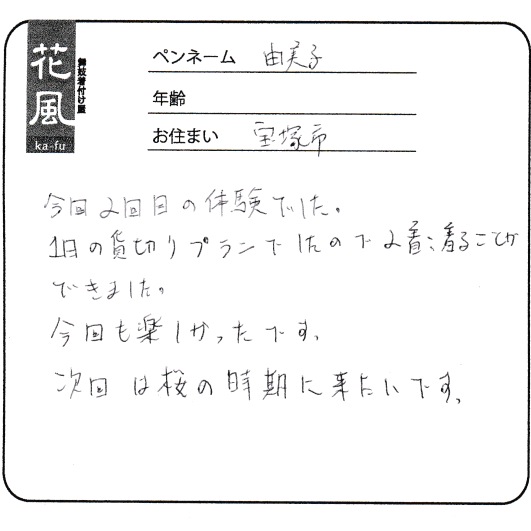 花風
舞妓着付け屋
ka-fu
ペンネーム 由実子
年齢
お住まい 宝塚市
今回2回目の体験でした。
1日の貸切りプランでしたので2着着ることが
できました。
今回も楽しかったです。
次回は桜の時期に来たいです。